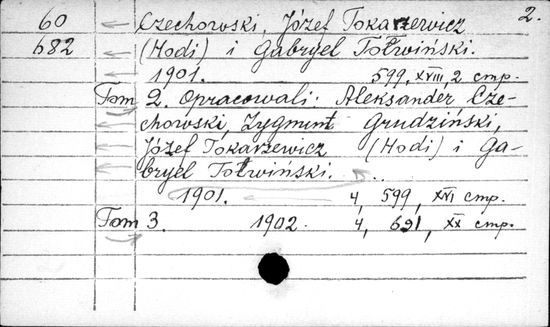 2.
60 Czechowski, Józef Tokarzewicz
682 (Hodi) i Gabryel Tołwiński.
1901. 599, XVIII, 2 стр.
Tom 2. Opracowali: Aleksander Cze-
chowski, Zygmunt Grudziński,
Józef Tokarzewicz (Hodi) i Ga-
bryel Tołwiński.
1901. 4, 599, XVI стр.
Tom 3. 1902. 4, 691, XX стр.